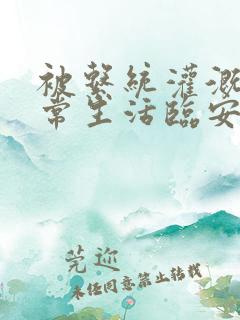 被繫統灌溉
常生活臨安
莞迩
未任同意禁止转载